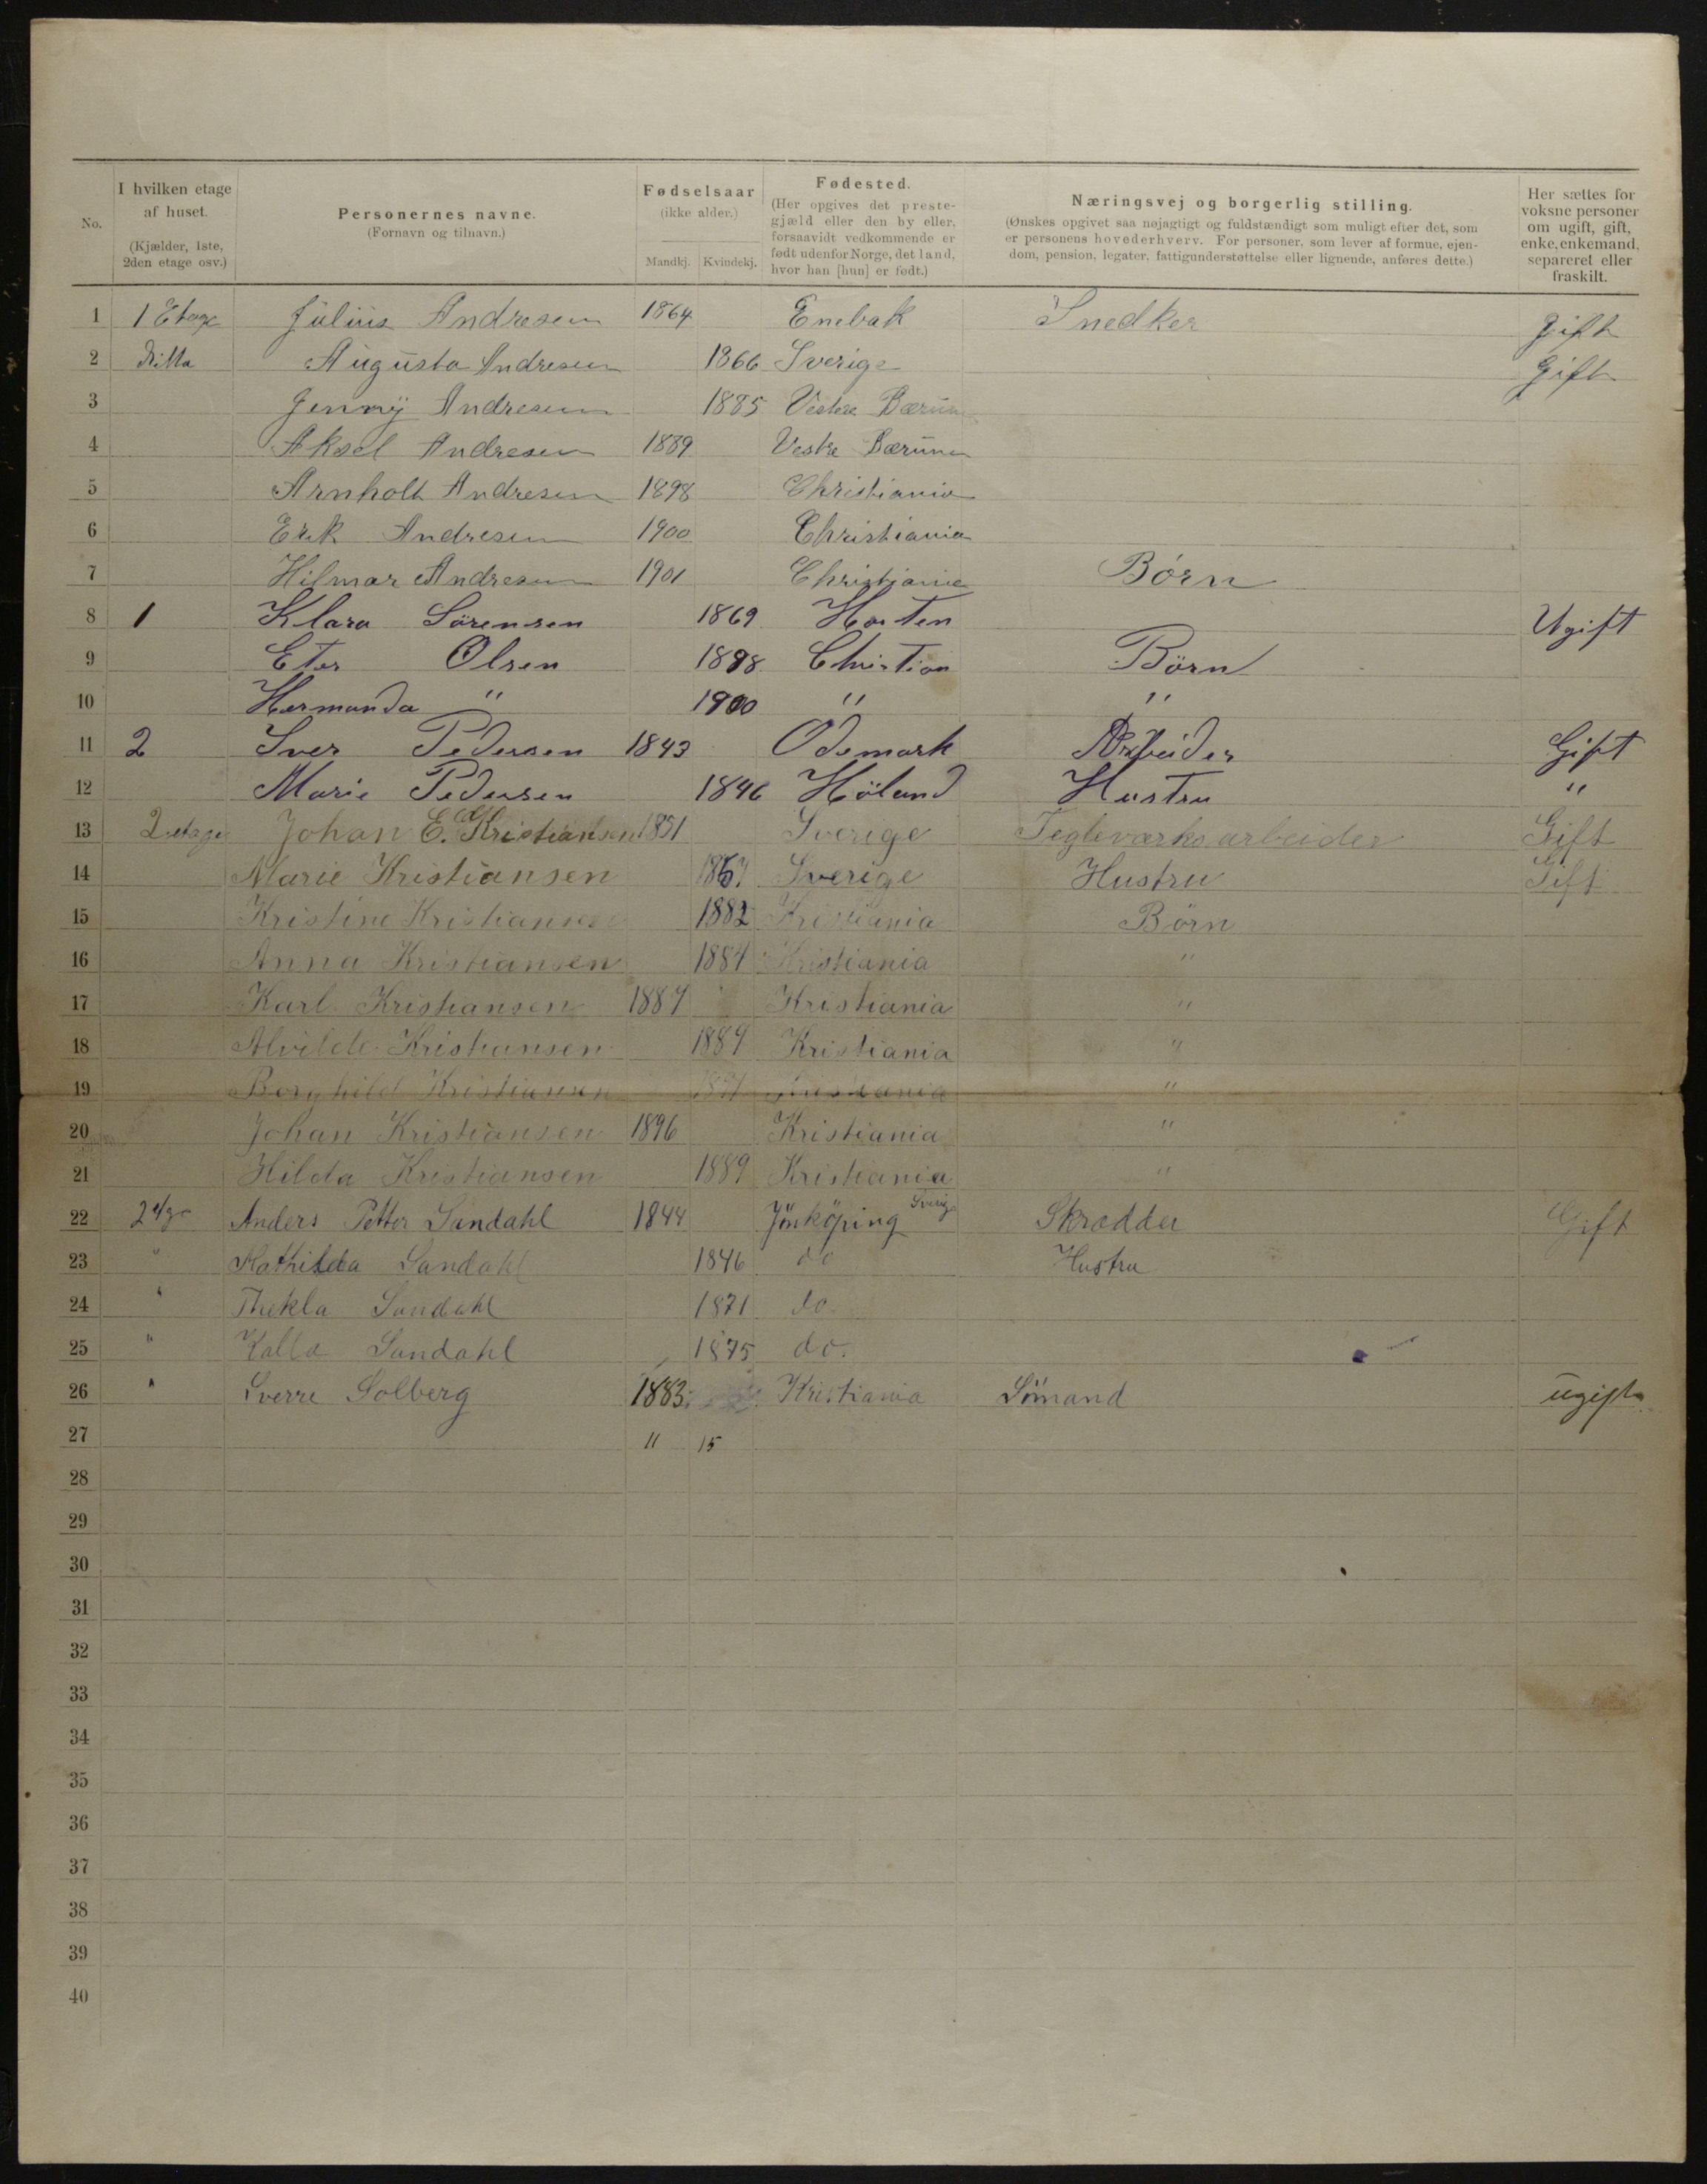 No. I hvilken etage af huset. (Kjælder, 1ste, 2den etage osv.) Personernes navne. (Fornavn og tilnavn.) Fødselsaar (ikke alder.) Mandkj. Kvindekj. Fødested. (Her opgives det prestegjæld eller den by eller, forsaavidt vedkommende er født udenfor Norge, det land, hvor han [hun] er født.) Næringsvej og borgerlig stilling. (Ønskes opgivet saa nøjagtigt og fuldstændigt som muligt efter det, som er personens hovederhverv. For personer, som lever af formue, ejendom, pension, legater, fattigunderstøttelse eller lignende, anføres dette.) Her sættes for voksne personer om ugift, gift, enke, enkemand, separeret eller fraskilt.
1 1 Etage Julius Andresen 1864 Enebak Snedker Gift
2 Ditto Augusta Andresen 1866 Sverige Gift
3 Jenny Andresen 1885 Vestre Bærum
4 Aksel Andresen 1889 Vestre Bærum
5 Arnholt Andresen 1898 Christiania
6 Erik Andresen 1900 Christiania
7 Hilmar Andresen 1901 Christiania Børn
8 1 Klara Sørensen 1869 Horten Ugift
9 Olsen 1898 Christian Børn
10 Hermanda " 1900 " "
11 2 Iver Pedersen 1843 Ødemark Arbeider Gift
12 Marie Pedersen 1846 Høland Hustru "
13 2 etage Johan E. Kristiansen 1851 Sverige Tegleværksarbeider Gift
14 Marie Kristiansen 1867 Sverige Hustru Gift
15 Kristine Kristiansen 1882 Kristiania Børn
16 Anna Kristiansen 1884 Kristiania "
17 Karl Kristiansen 1887 Kristiania "
18 Alvilde Kristiansen 1889 Kristiania "
19 Borghild Kristiansen Kristiania "
20 Johan Kristiansen 1896 Kristiania "
21 Hilda Kristiansen 1889 Kristiania "
22 Anders Petter Sandahl 1844 Jönköping Sverige Skrædder Gift
23 " Mathilda Sandahl 1846 do Hustru
24 " Thekla Sandahl 1871 do.
25 " Kalla Sandahl 1875 do.
26 " Sverre Solberg 1883 Kristiania Sömand ugift
27 11 15
28
29
30
31
32
33
34
35
36
37
38
39
40